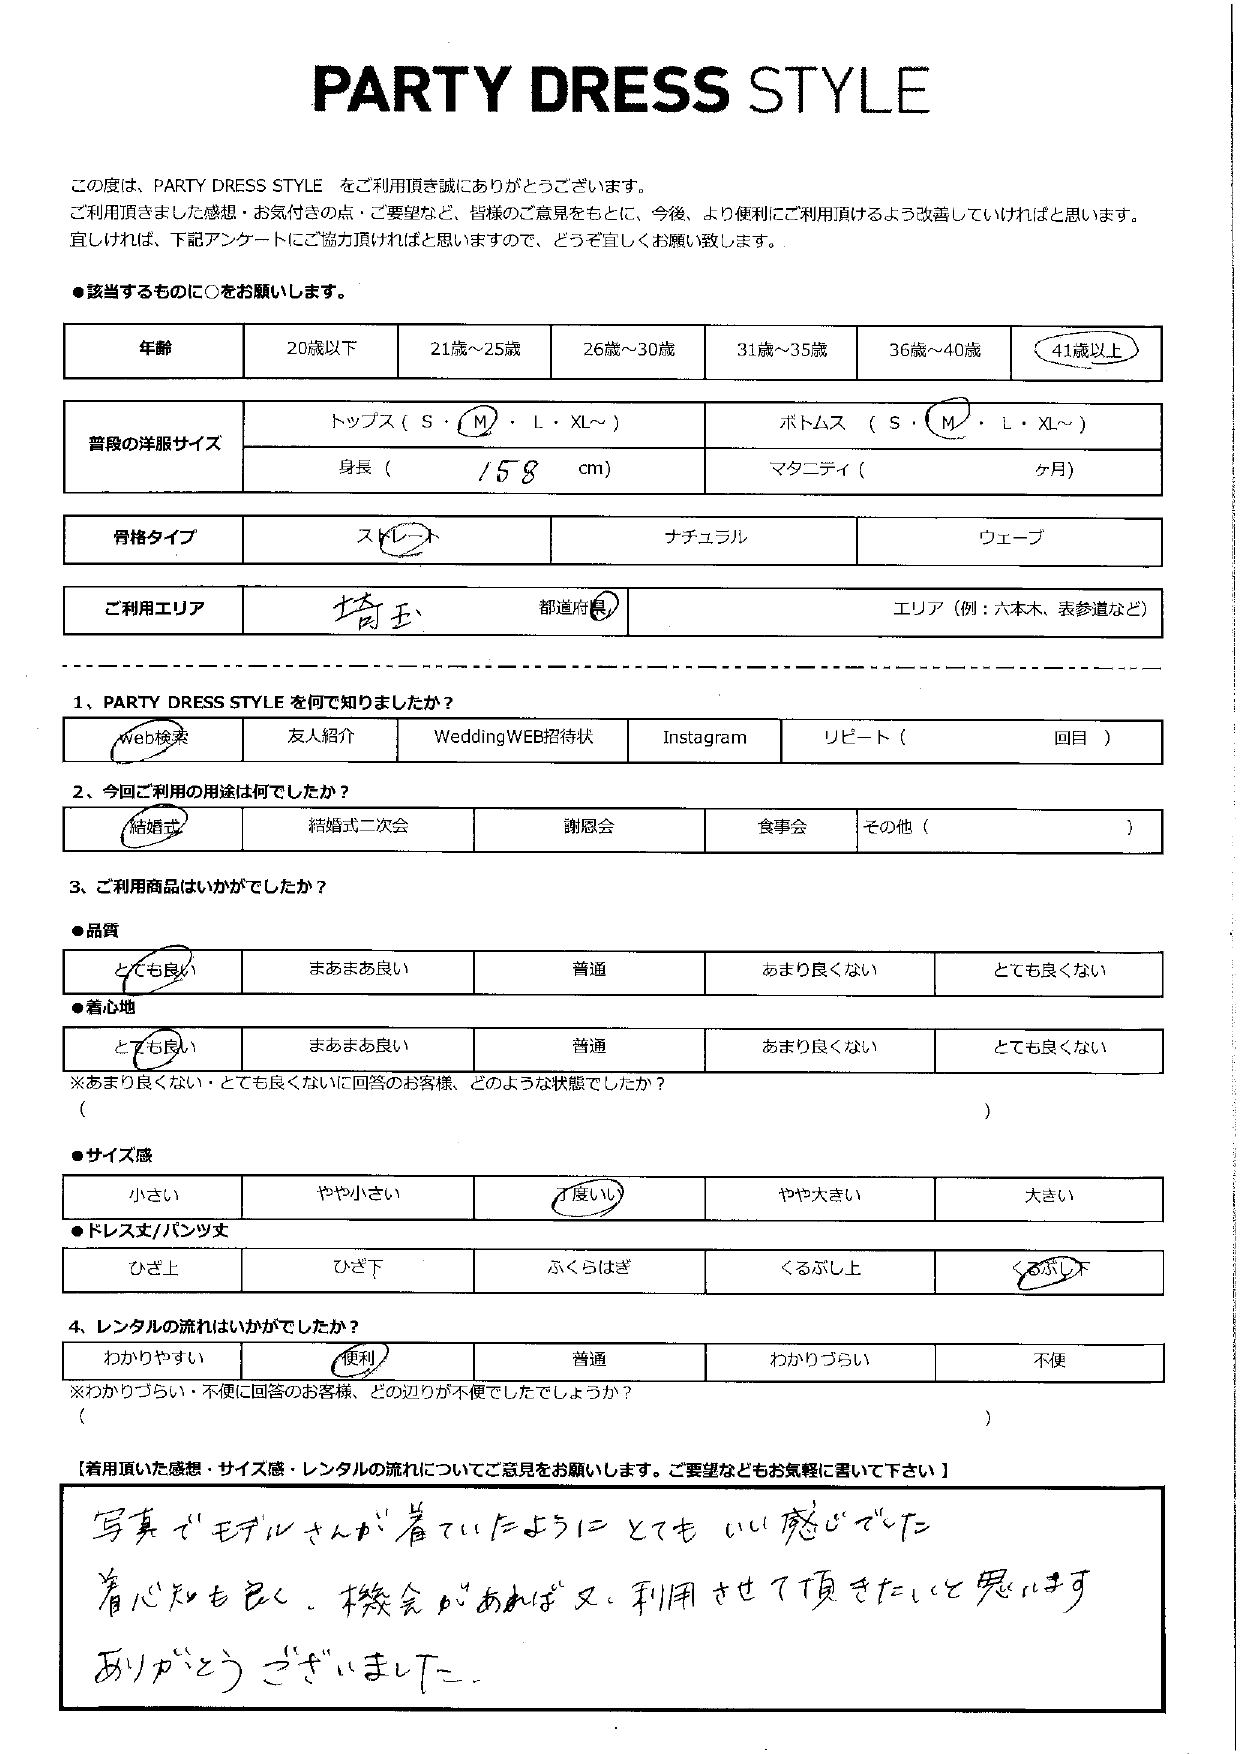 PARTY DRESS STYLE
この度は、PARTY DRESS STYLE をご利用頂き誠にありがとうございます。
ご利用頂きました感想・お気付きの点・ご要望など、皆様のご意見をもとに、今後、より便利にご利用頂けるよう改善していければと思います。
宜しければ、下記アンケートにご協力頂ければと思いますので、どうぞ宜しくお願い致します。
●該当するものに○をお願いします。
年齢 20歳以下 21歳～25歳 26歳～30歳 31歳～35歳 36歳～40歳 41歳以上
普段の洋服サイズ トップス ( S ・ M ・ L ・ XL～ ) ボトムス ( S ・ M ・ L ・ XL～ )
身長 ( 158 cm) マタニティ ( ヶ月)
骨格タイプ ストレート ナチュラル ウェーブ
ご利用エリア 埼玉 都道府県 エリア（例：六本木、表参道など）
1、PARTY DRESS STYLE を何で知りましたか？
Web検索 友人紹介 WeddingWEB招待状 Instagram リピート ( 回目 )
2、今回ご利用の用途は何でしたか？
結婚式 結婚式二次会 謝恩会 食事会 その他 ( )
3、ご利用商品はいかがでしたか？
●品質
とても良い まあまあ良い 普通 あまり良くない とても良くない
●着心地
とても良い まあまあ良い 普通 あまり良くない とても良くない
※あまり良くない・とても良くないに回答のお客様、どのような状態でしたか？
( )
●サイズ感
小さい やや小さい 丁度いい やや大きい 大きい
●ドレス丈/パンツ丈
ひざ上 ひざ下 ふくらはぎ くるぶし上 くるぶし下
4、レンタルの流れはいかがでしたか？
わかりやすい 便利 普通 わかりづらい 不便
※わかりづらい・不便に回答のお客様、どの辺りが不便でしたでしょうか？
( )
【着用頂いた感想・サイズ感・レンタルの流れについてご意見をお願いします。ご要望などもお気軽に書いて下さい 】
写真でモデルさんが着ていたようにとてもいい感じでした
着心知も良く、機会があれば又、利用させて頂きたいと思います
ありがとうございました。